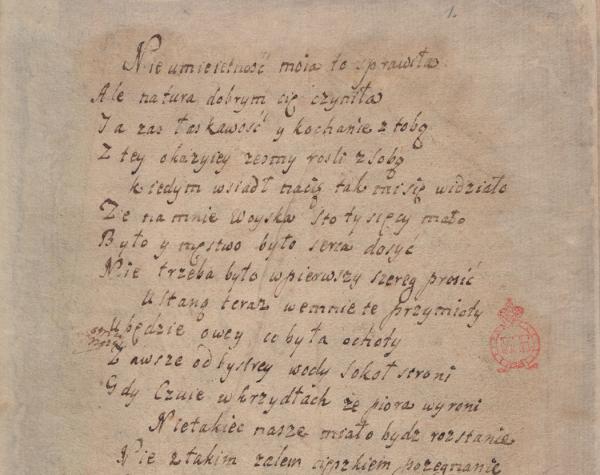 1.
Nie umieiętność moia to sprawiła
Ale natura dobrym cię czyniła
Ta zas łaskawość y kochanie z tobą
Z tey okazyiey zesmy rosli z sobą
kiedym wsiadł nacię tak mi się widziało
Ze na mnie Woyska sto tysięcy mało
Było y męstwo było serca dosyć
Nie trzeba było wpierwszy szereg prosić
Ustaną teraz wemnie te przymioty
Ubędzie owey co była ochoty
Zawsze od bystrey wody sokoł stroni
Gdy Czuie w skrzydłach że piora wyroni
Nietakiec nasze miało bydz rozstanie
Nie z takim zalem cięzkiem pozegnanie